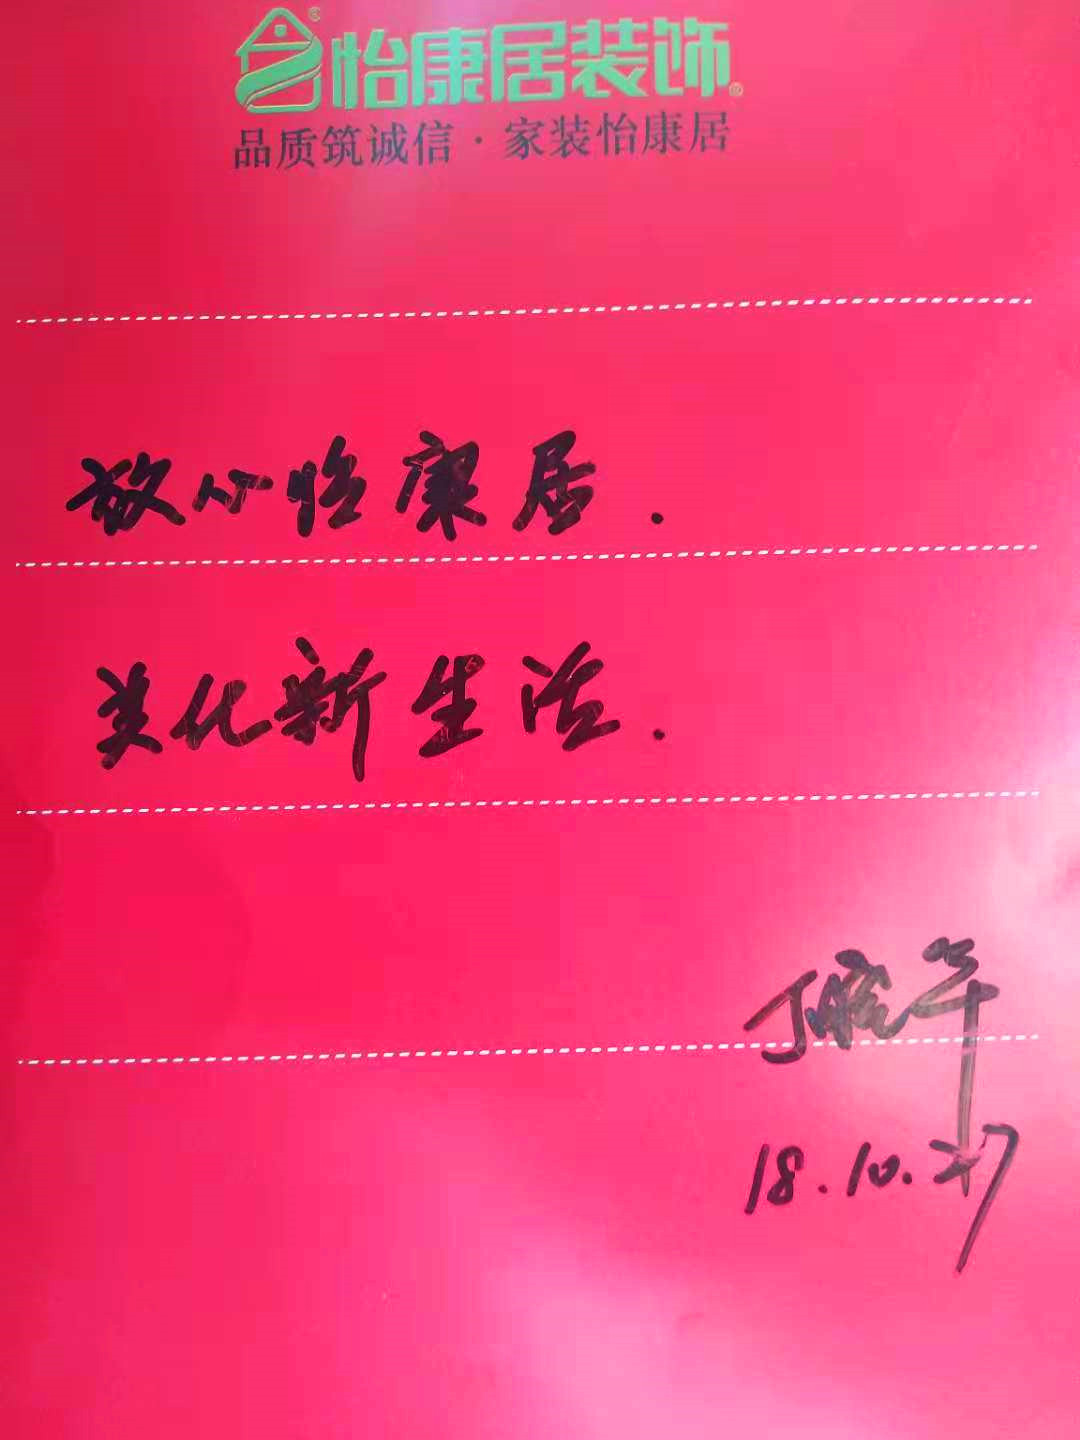 怡康居装饰
品质筑诚信·家装怡康居
放心怡康居.
美化新生活.
丁晓华
18.10.27